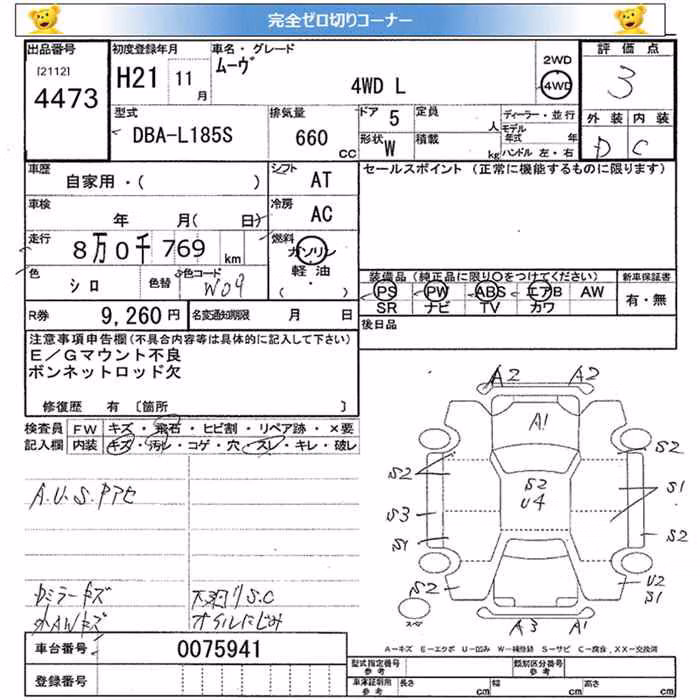 完全ゼロ切りコーナー
出品番号
[2112]
4473
初度登録年月
H21 11月
車名・グレード
ムーヴ
4WD L
2WD
4WD
評価点
3
外装 内装
D C
型式
DBA-L185S
排気量
660 CC
ドア 5
形状 W
定員 人
積載 kg
ディーラー・並行
モデル年式 年
ハンドル 左・右
車歴
自家用・( )
シフト AT
車検
年 月( 日)
冷房 AC
走行
8万0千769 km
燃料
ガソリン
軽・油
( ・ )
色 シロ 色替
色コード W09
R券 9,260円
名変通知期限 月 日
セールスポイント (正常に機能するものに限ります)
装備品 (純正品に限り○をつけてください)
PS PW ABS エアB AW
SR ナビ TV カワ
新車保証書
有・無
後日品
注意事項申告欄(不具合内容等は具体的に記入して下さい)
E/Gマウント不良
ボンネットロッド欠
修復歴 有 〔箇所 〕
検査員記入欄
FW キズ・飛石・ヒビ割・リペア跡・×要
内装 キズ・汚レ・コゲ・穴・スレ・キレ・破レ
A.U.S.Pアセ
Dミラーキズ
外AWキズ
下廻りS.C
オイルにじみ
A2 A2
A1
S2 S2
S2
U4
S1
S3
S1
S2
S2
U2
S1
A3 A1
スペア
A-キズ E-エクボ U-凹み W-補修跡 S-サビ C-腐食 , XX-交換済
車台番号 0075941
登録番号
型式指定番号
参考
類別区分番号
参考
車庫証明用
参考
長さ cm
幅 cm
高さ cm